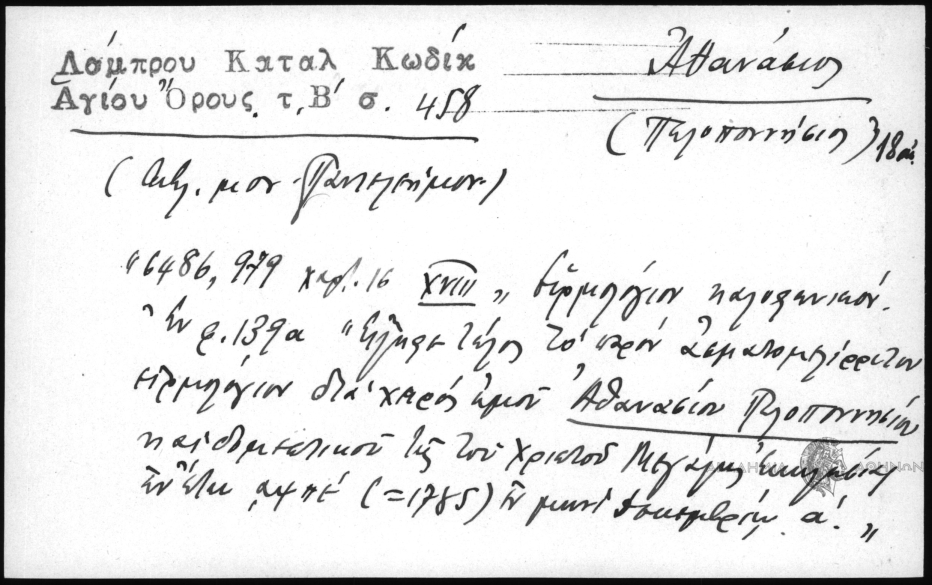 Λάμπρου Καταλ Κωδίκ
Ἁγίου Ὄρους. τ. Β' σ. 458
Ἀθανάσιος
(Πελοποννήσιος) 18 αἰ.
( μον. Παντελεήμον.)
"6486, 979 χαρτ. 16 XVIII „ Εἱρμολόγιον καλοφωνικόν.
Ἐν φ. 139α "Εἴληφε τέλος τὸ παρόν ἀσματομελίρρυτον
εἱρμολόγιον διὰ χειρός ἐμοῦ Ἀθανασίου Πελοποννησίου
καὶ δομεστικοῦ τῆς τοῦ Χριστοῦ Μεγάλης ἐκκλησίας
ἐν ἔτει αψπέ (=1785) ἐν μηνὶ Δεκεμβρίῳ α'. „